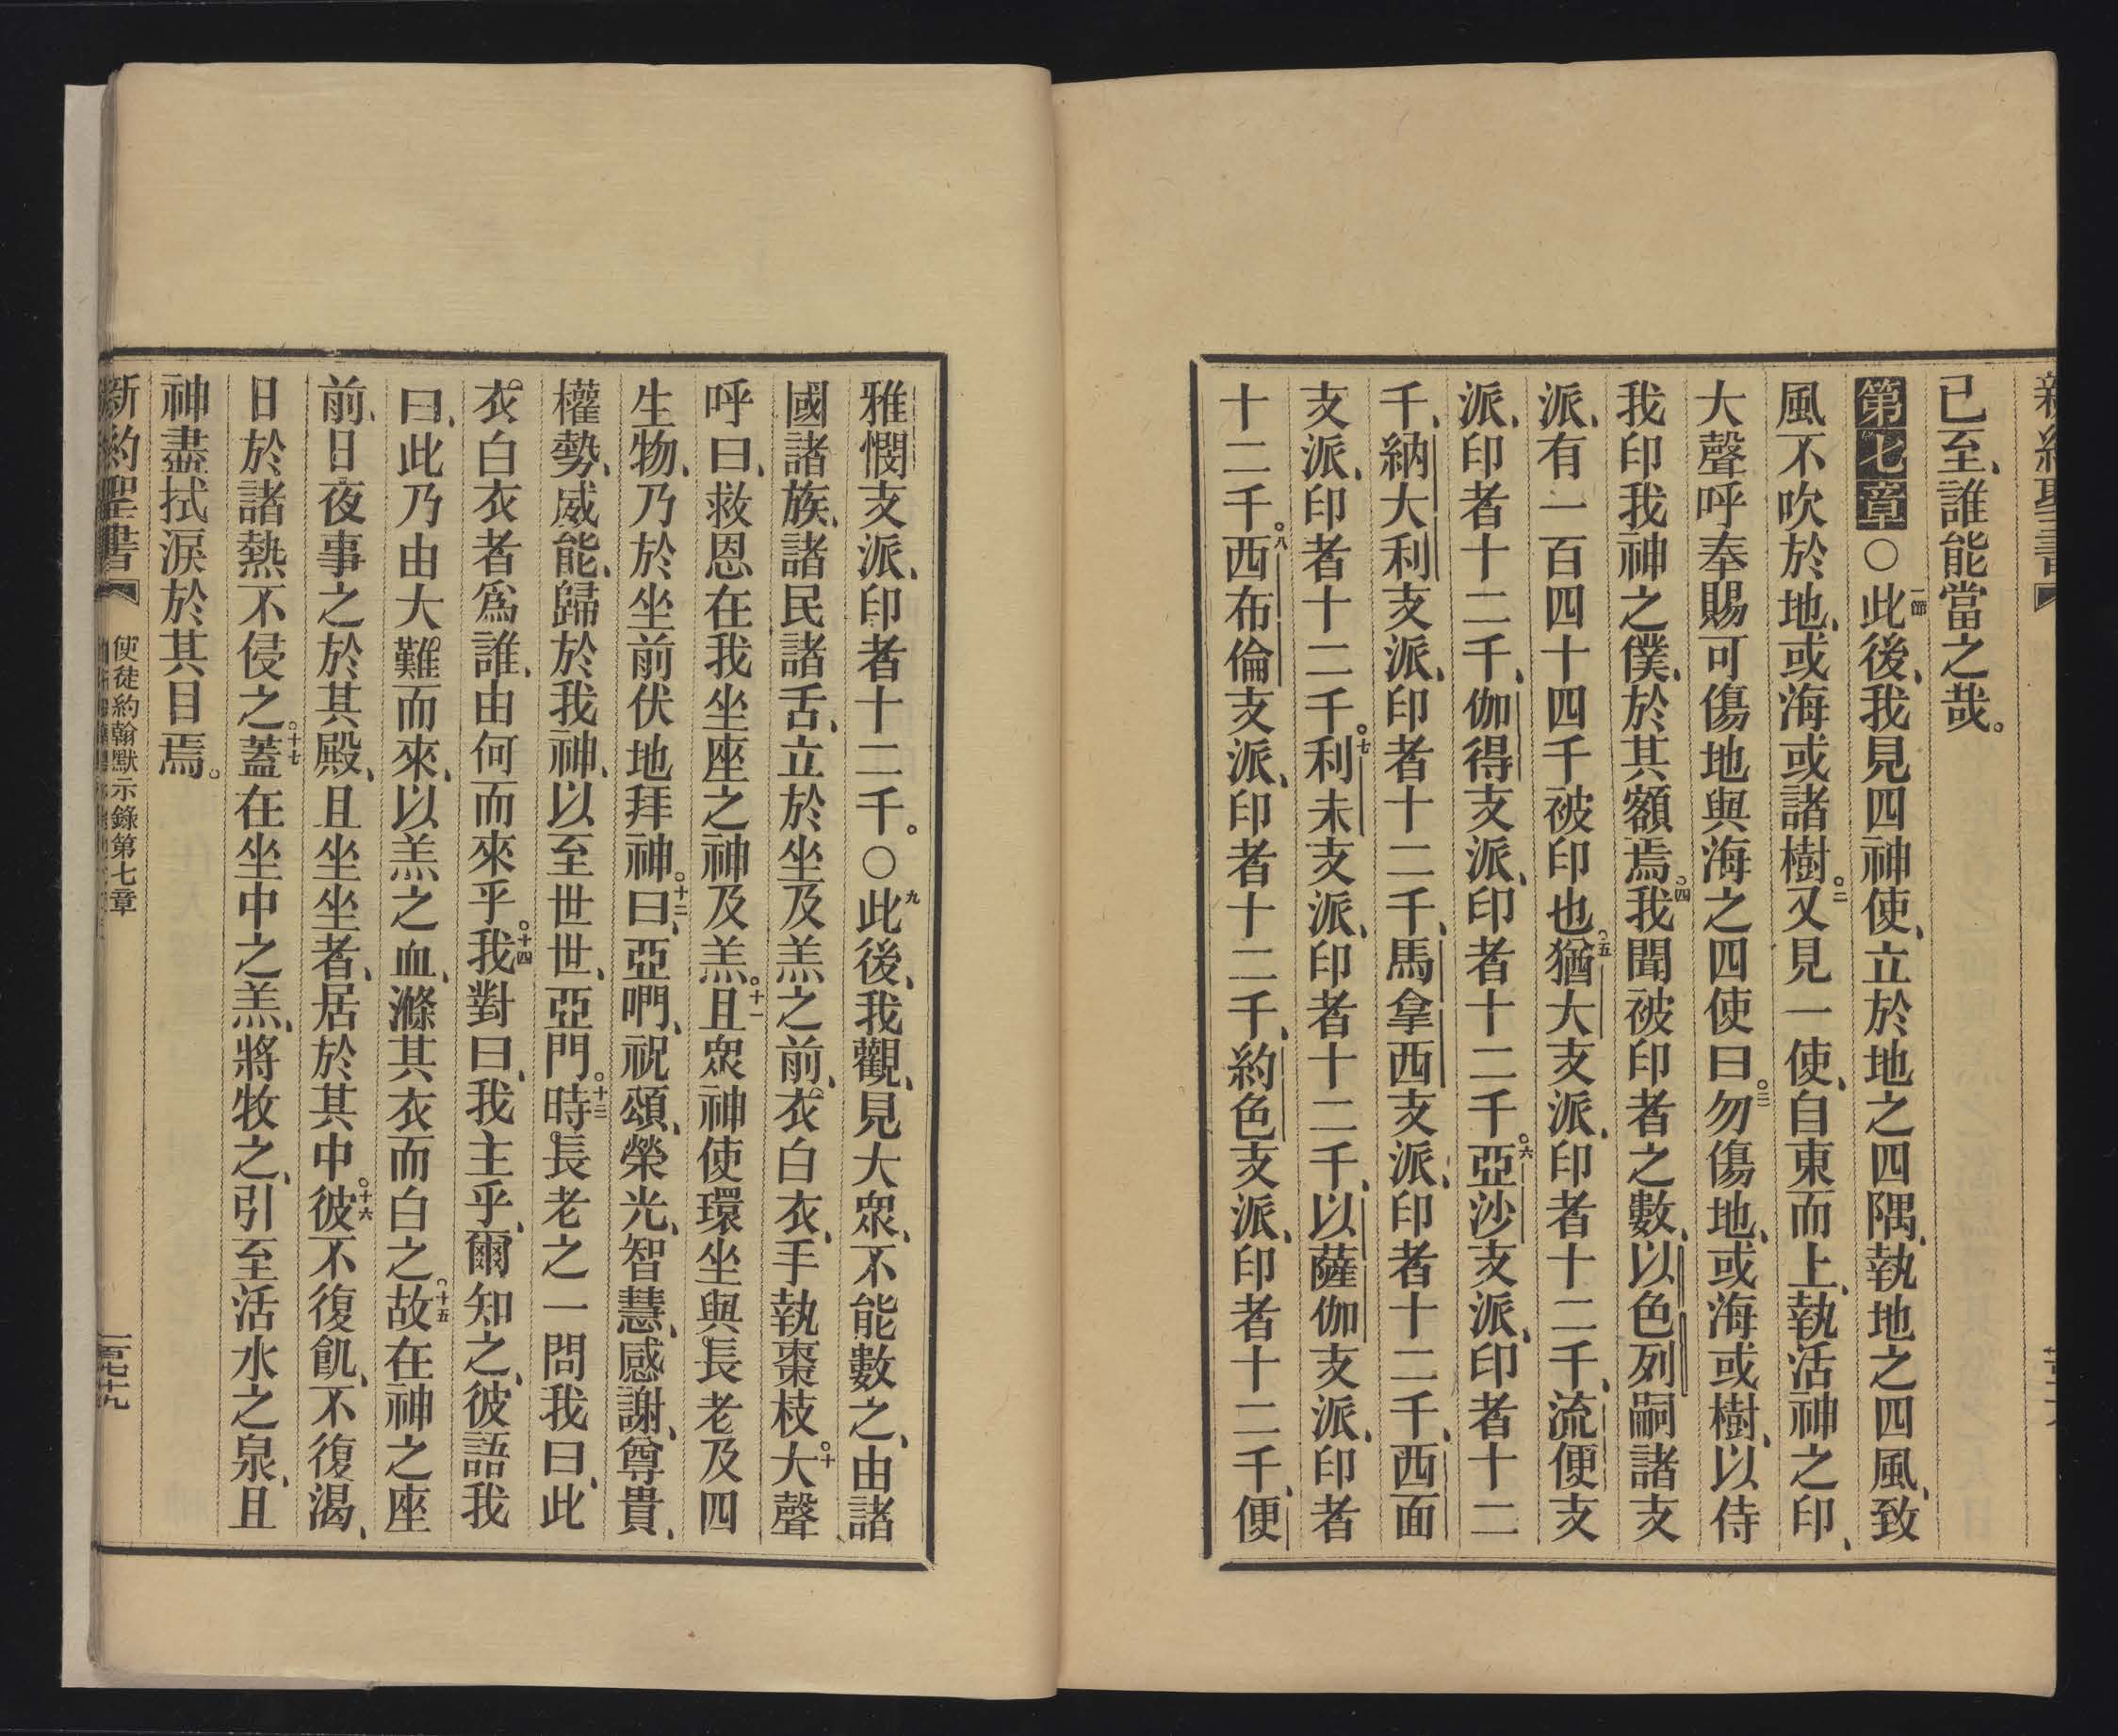 已至、誰能當之哉。
第七章○一節此後、我見四神使、立於地之四隅、執地之四風、致
風不吹於地、或海或諸樹。二又見一使、自東而上、執活神之印、
大聲呼奉賜可傷地與海之四使曰。三勿傷地、或海或樹、以待
我印我神之僕、於其額焉。四我聞被印者之數、以色列嗣諸支
派、有一百四十四千被印也。五猶大支派、印者十二千、流便支
派、印者十二千、伽得支派、印者十二千。六亞沙支派、印者十二
千、納大利支派、印者十二千、馬拿西支派、印者十二千、西面
支派、印者十二千。七利未支派、印者十二千、以薩伽支派、印者
十二千。八西布倫支派、印者十二千、約色支派、印者十二千、便
雅憫支派、印者十二千。○九此後、我觀、見大眾、不能數之、由諸
國諸族、諸民諸舌、立於坐及羔之前、衣白衣、手執棗枝。十大聲
呼曰、救恩在我坐座之神及羔。十一且眾神使環坐與長老及四
生物、乃於坐前伏地拜神。十二曰、亞們、祝頌、榮光、智慧、感謝、尊貴、
權勢、威能、歸於我神、以至世世、亞門。十三時長老之一問我曰、此
衣白衣者為誰、由何而來乎。十四我對曰、我主乎、爾知之、彼語我
曰、此乃由大難而來、以羔之血、滌其衣而白之。十五故在神之座
前、日夜事之於其殿、且坐坐者、居於其中。十六彼不復飢、不復渴、
日於諸熱不侵之。十七蓋在坐中之羔、將牧之、引至活水之泉、且
神盡拭淚於其目焉。
新約聖書
使徒約翰默示錄第七章
一百七十九